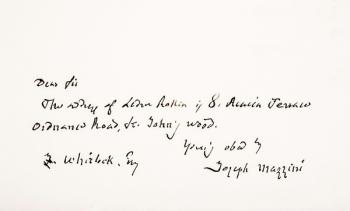 Dear Sir
The address of Ledru Rollin is 8. Road Terrace
Ordnance Road, St. John's Wood.
Yours obed ly
Joseph Mazzini
Whitbeck. Esq